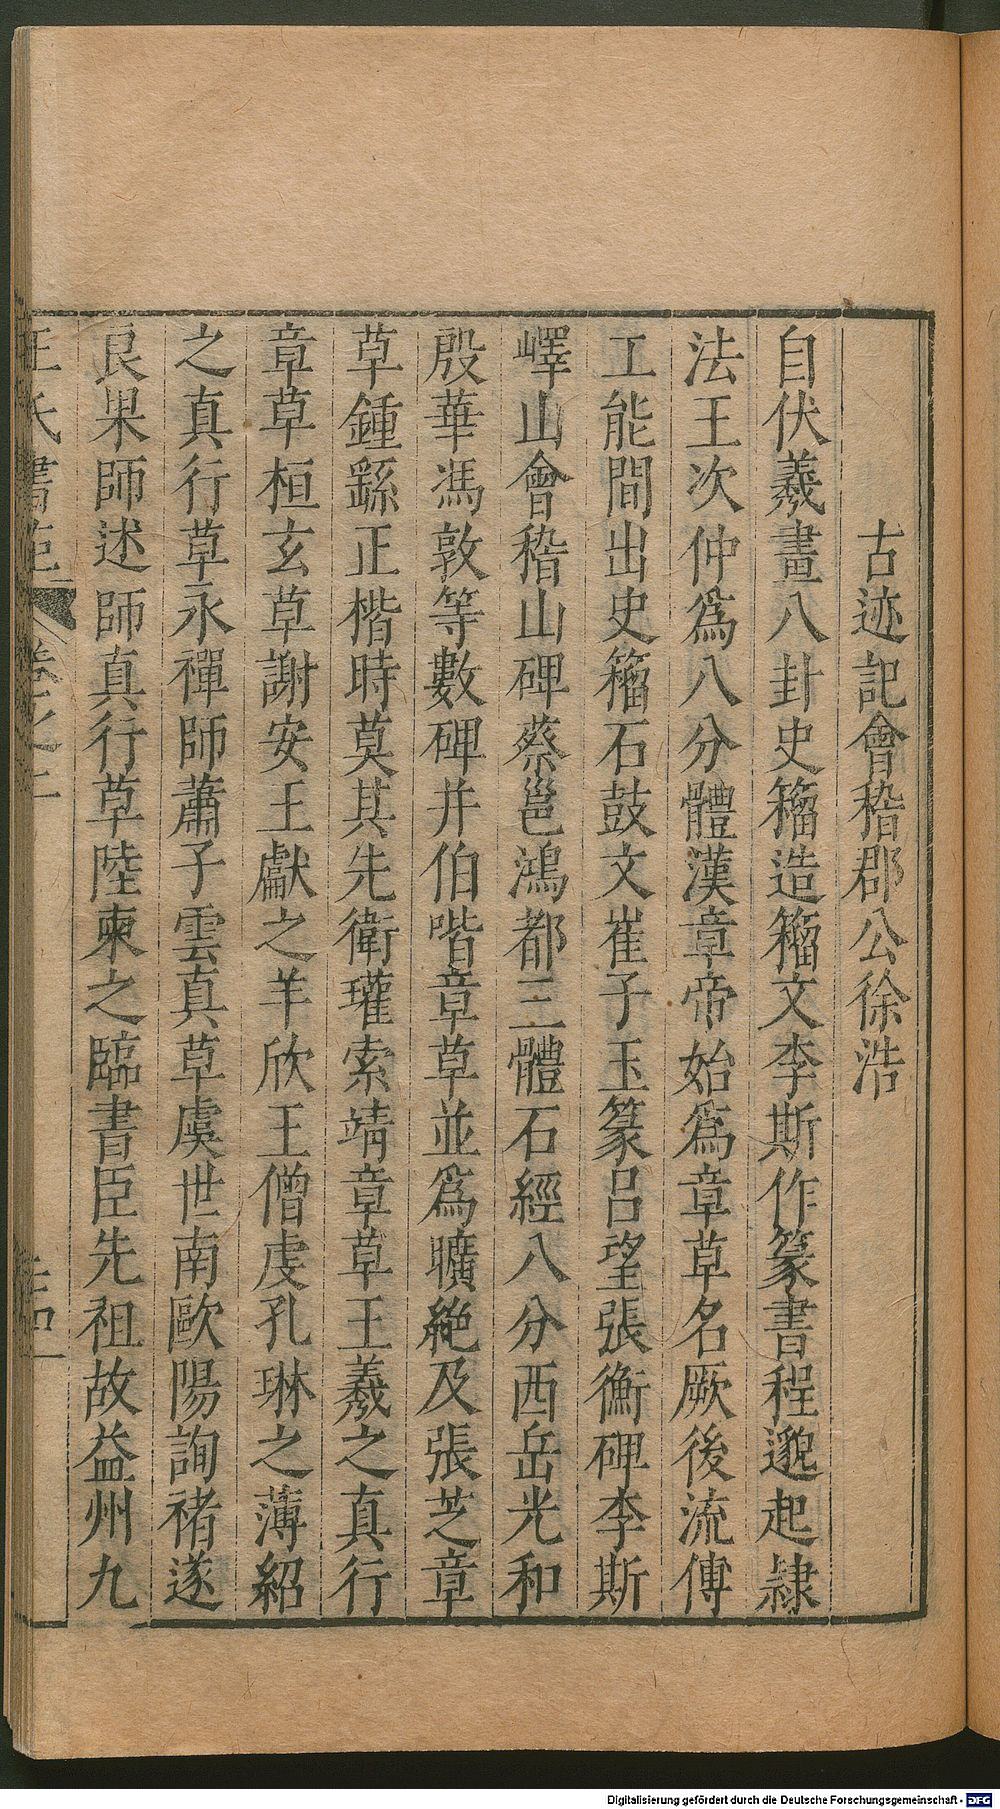 古迹記會稽郡公徐浩
自伏羲畫八卦史籀造籀文李斯作篆書程邈起隷
法王次仲爲八分體漢章帝始爲章草名厥後流傳
工能間出史籀石鼓文崔子玉篆吕望張衡碑李斯
嶧山會稽山碑蔡邕鴻都三體石經八分西岳光和
殷華馮敦等數碑并伯喈章草並爲曠絶及張芝章
草鍾繇正楷時莫其先衛瓘索靖章草王羲之真行
章草桓玄草謝安王獻之羊欣王僧虔孔琳之薄紹
之真行草永禪師蕭子雲真草虞世南歐陽詢禇遂
良果師述師真行草陸柬之臨書臣先祖故益州九
王氏書苑 卷之二
Digitalisierung gefördert durch die Deutsche Forschungsgemeinschaft - DFG